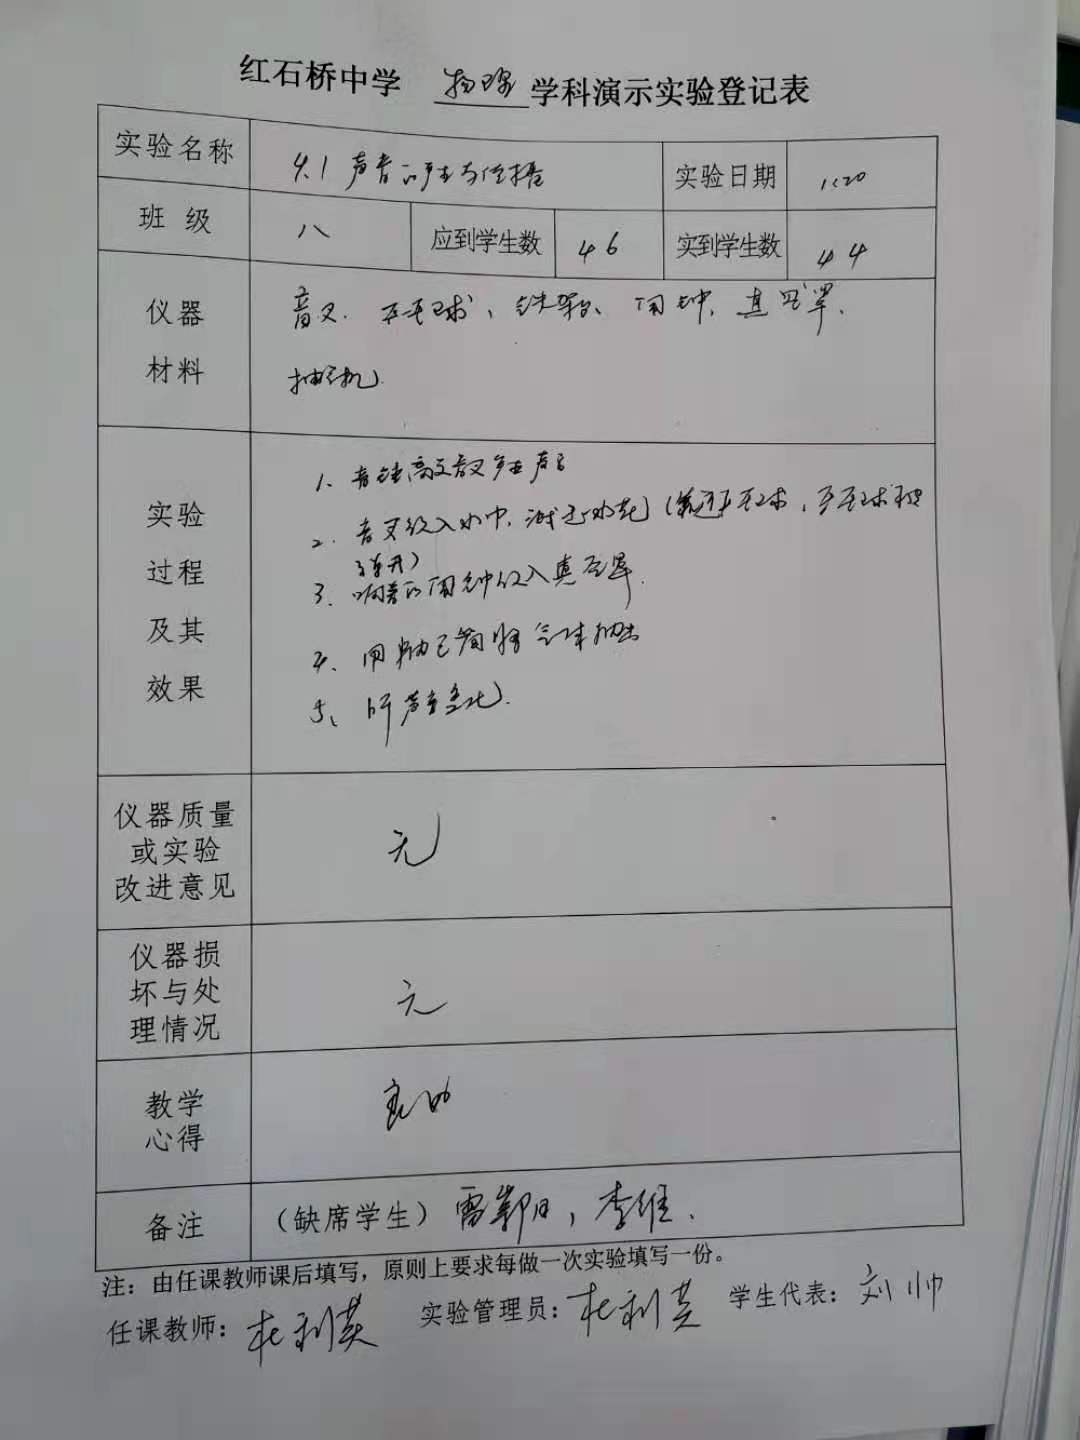 红石桥中学 物理 学科演示实验登记表
实验名称 4.1 声音的产生与传播 实验日期 11.20
班 级 八 应到学生数 46 实到学生数 44
仪器 音叉、乒乓球、铁架台、闹钟、真空罩、
材料 抽气机
实验
过程
及其
效果
1、音锤敲音叉产生声音
2、音叉放入水中,溅起水花(靠近乒乓球,乒乓球被
弹开)
3、响着的闹钟放入真空罩
4、用抽气筒将气体抽出
5、听声音变化
仪器质量
或实验
改进意见
无
仪器损
坏与处
理情况
无
教学
心得
良好
备注 (缺席学生) 雷 , 李维
注:由任课教师课后填写,原则上要求每做一次实验填写一份。
任课教师: 杜利英 实验管理员: 杜利英 学生代表: 刘帅